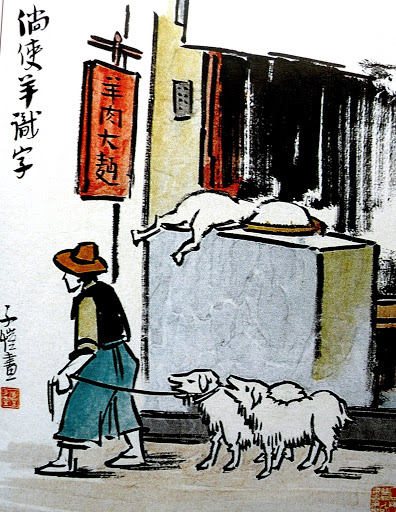 倘使羊識字
羊肉大麵
子愷畫